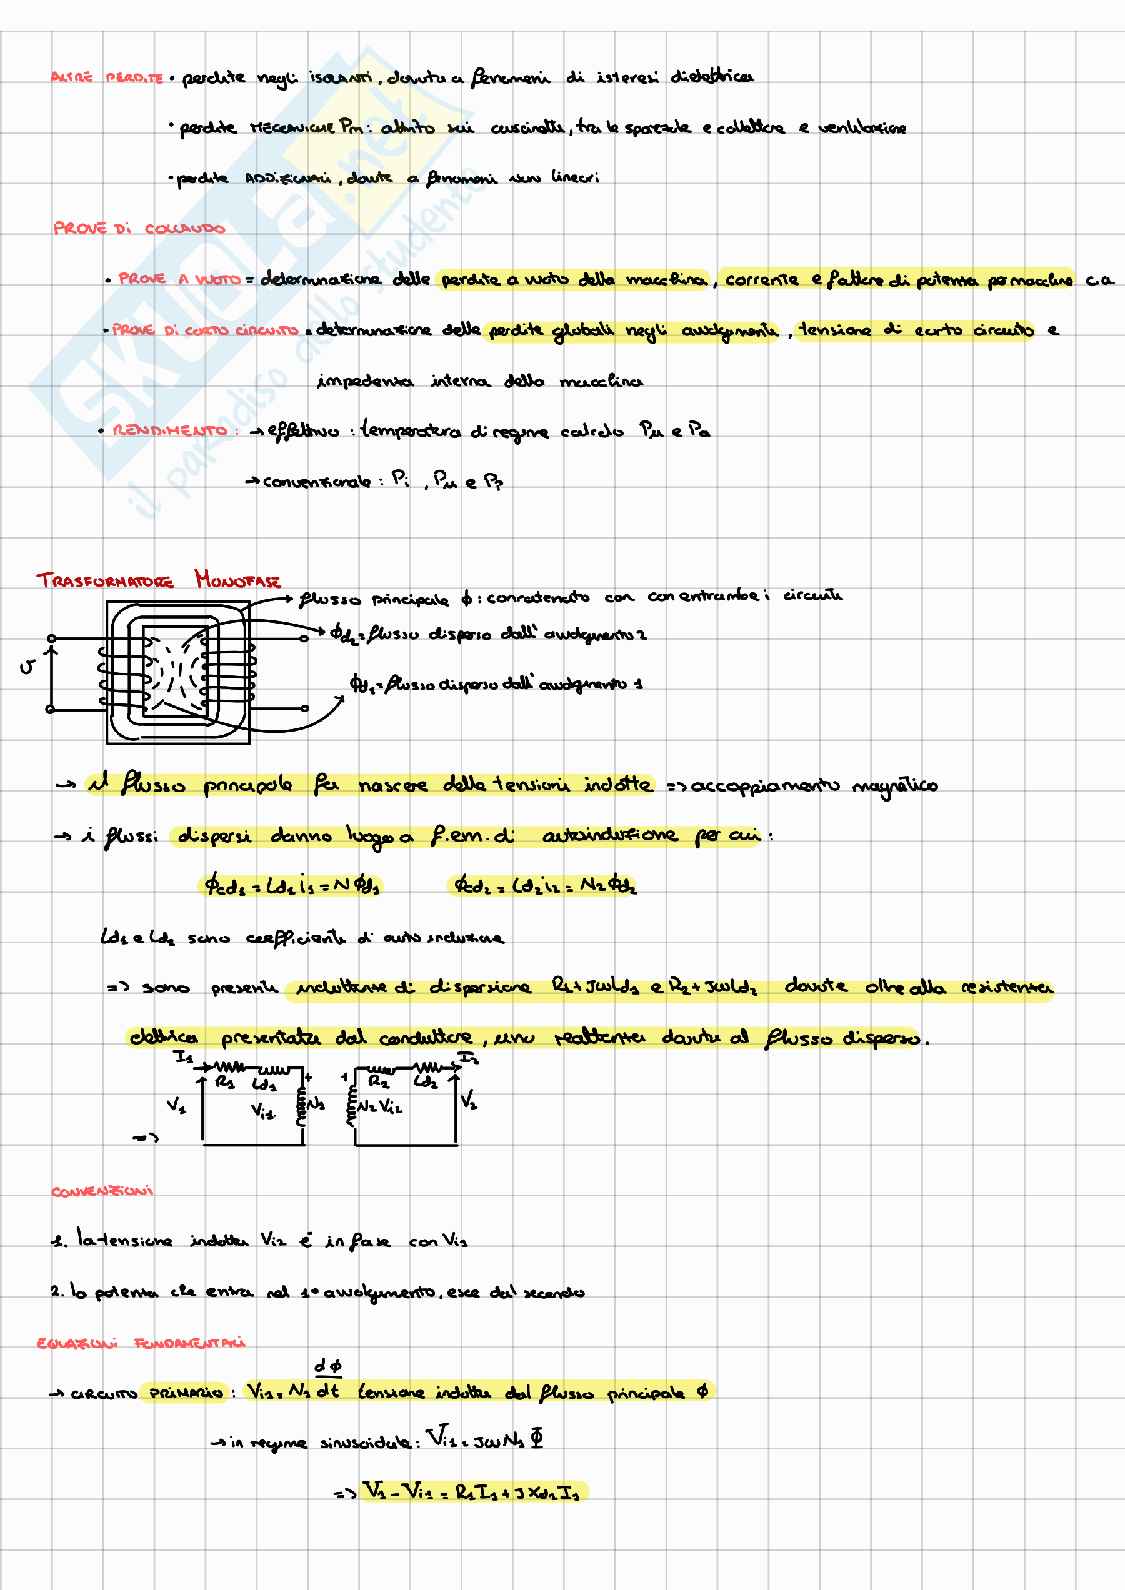 ALTRE PERDITE • perdite negli isolanti, dovute a fenomeni di isteresi dielettrica
• perdite MECCANICHE Pm: attrito sui cuscinetti, tra le spazzole e collettore e ventilazione
• perdite ADDIZIONALI, dovute a fenomeni non lineari
PROVE Di COLLAUDO
• PROVE A VUOTO = determinazione delle perdite a vuoto della macchina, corrente e fattore di potenza per macchine c.a
• PROVE DI CORTO CIRCUITO = determinazione delle perdite globali negli avvolgimenti, tensione di corto circuito e
impedenza interna della macchina
• RENDIMENTO: → effettivo: temperatura di regime calcolo Pu e Pa
→ convenzionale: Pi, Pu e Pp
skuola.net
il paradiso dello studente
TRASFORMATORE MONOFASE
flusso principale ϕ: concatenato con con entrambe i circuiti
ϕd2 = flusso disperso dall' avvolgimento 2
v
ϕd1 = flusso disperso dall' avvolgimento 1
→ il flusso principale fa nascere delle tensioni indotte => accoppiamento magnetico
→ i flussi dispersi danno luogo a f.em. di autoinduzione per cui:
ϕcd1 = Ld1 i1 = N ϕd1 ϕcd2 = Ld2 i2 = N2 ϕd2
Ld1 e Ld2 sono coefficienti di auto induzione
=> sono presenti induttanze di dispersione R1 + JωLd1 e R2 + JωLd2 dovute oltre alla resistenza
elettrica presentata dal conduttore, una reattanza dovuta al flusso disperso.
I1 I2
R1 Ld1 + + R2 Ld2
V1 Vi1 N1 N2 Vi2 V2
=>
CONVENZIONI
1. la tensione indotta Vi2 è in fase con Vi1
2. la potenza che entra nel 1° avvolgimento, esce dal secondo
EQUAZIONI FONDAMENTALI
→ CIRCUITO PRIMARIO: Vi1 = N1 dϕ/dt tensione indotta dal flusso principale ϕ
→ in regime sinusoidale: Vi1 = JωN1 Φ
=> V1 - Vi1 = R1 I1 + J Xd1 I1